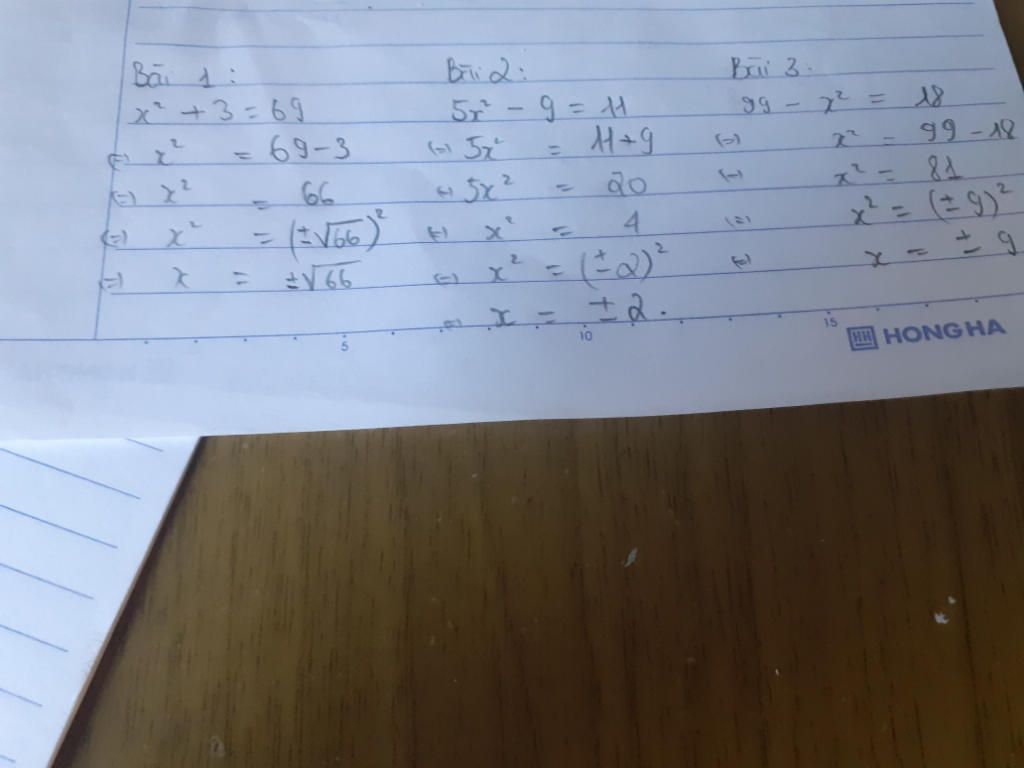 Bài 1:
x² + 3 = 69
(=) x² = 69 - 3
(=) x² = 66
(=) x² = (±√66)²
(=) x = ±√66
Bài 2:
5x² - 9 = 11
(=) 5x² = 11 + 9
(=) 5x² = 20
(=) x² = 4
(=) x² = (±2)²
(=) x = ±2.
Bài 3:
99 - x² = 18
(=) x² = 99 - 18
(=) x² = 81
(=) x² = (±9)²
(=) x = ±9
5 10 15
HH HONG HA